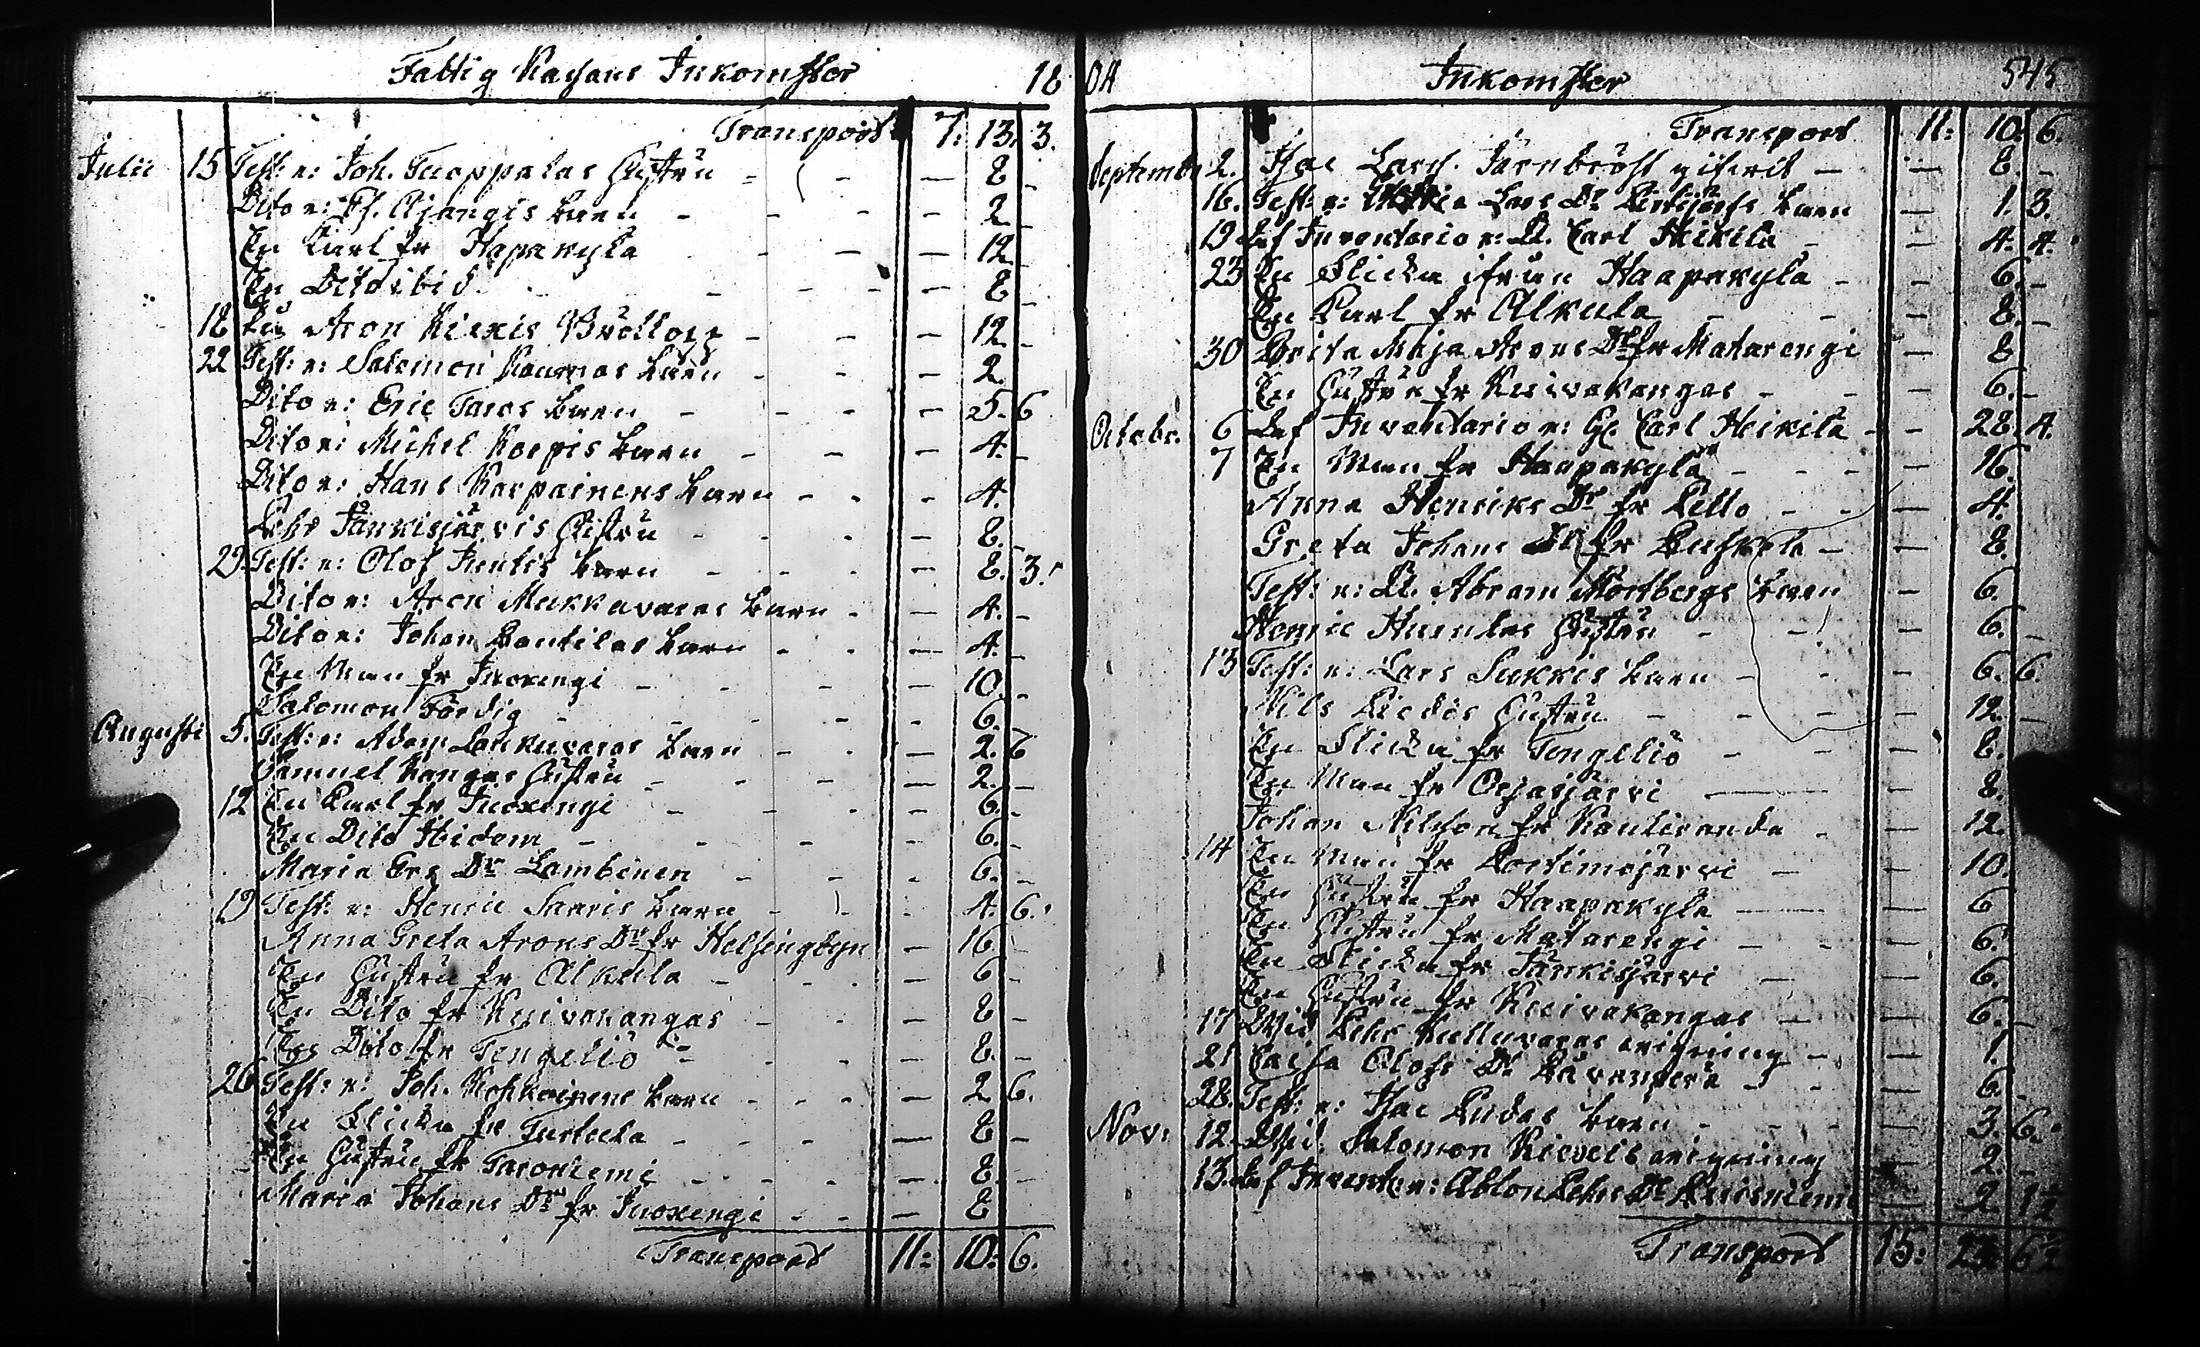 Fattig Kassans Inkomster 18
Transport 7: 13. 3.
Julii 15 Test: e: Joh. Tuoppalas Hustru - - - 8 -
Dito e: Pl. Ajangis barn - - - 2 -
En Karl fr Hapakyla - - - 12
En Dito ibid - - - 8 -
18 På Aron Kiexis Bröllop - - - 12 -
22 Test: e: Salomon barn - - - 2.
Dito e: Eric Taros barn - - - 5. 6
Dito e: Michel Koepis barn - - - 4. -
Dito e: Hans Karpainens barn - - - 4.
Pehr Jänkisjärvis Hustru - - - 8.
29 Test: e: Olof Juntis barn - - - 8. 3.
Dito e: Aron Mukkavaras barn - - 4. -
Dito e: Johan Pantilas barn - - - 4. -
En Man fr Juoxengi - - - 10. -
Salomon Fördig - - - 6. -
Augusti 5. Test: e: Adam Lankuvaras barn - - - 2. 6
Samuel Kangas Hustru - - - 2. -
12 En Karl fr Juoxengi - - - 6. -
En Dito Hidem - - - 6. -
Maria Ers Dr Lambinen - - - 6. -
19 Test: e: Henric Saaris barn - - - 4. 6.
Anna Greta Arons Dr fr Helsingbyn - 16 -
En Hustru fr Alkula - - - 6 -
En Dito fr Kuivakangas - - - 8 -
En Dito fr Tengeliö - - - 8. -
26 Test: e: Joh. Kohkoinens barn - - - 2 6.
En Flicka fr Turtula - - - 8 -
En Hustru fr Taroniemi - - - 8. -
Maria Johans Dr fr Juoxengi - - - 8
Transport 11: 10: 6.
04 Inkomster 545
Transport 11: 10: 6.
September 2. Isac Lars Järnbröst gifvit - - 8. -
16. Test: e: Lars Dr barn - 1. 3.
19 Af Inventario e: D. Carl Heikila - 4. 4.
23 En Flicka ifrån Haapakyla - - 6. -
En Karl fr Alkula - - - 8. -
30 Brita Maja Arons Dr fr Matarengi - 8
En Hustru fr Kuivakangas - - - 6. -
Octobr. 6 Af Inventario e: Gl. Carl Heikila - - 28. 4.
7 En Man fr Haapakyla - - - 16.
Anna Henriks Dr fr Pello - - - 4.
Greta Johans Dr fr - - 8.
Test: e: D. Abram Mörtbergs barn - 6.
Henric Huuntas Hustru - - - 6. -
13 Test: e: Lars Sukkis barn - - 6. 6.
Nils Hustru - - - 12. -
En Flicka fr Tengeliö - - - 8.
En Man fr - - 8.
Johan Nilsson fr Kauliranda - - 12.
14 En Man fr Portimojärvi - - 10.
En Hustru fr Haapakyla - - 6
En Hustru fr Matarengi - - - 6.
En Flicka fr Jänkisjärvi - - 6.
En Hustru fr Kuivakangas - - 6. -
17 Wid Pehr vigning - - 1.
21 Caisa Olofs Dr - - 6 -
28. Test: e: Isac barn - - - 3. 6.
Nov: 12 Wid Salomon vigning 2. -
13. Af Invent: e: Pehrs Dr - 2. 1½
Transport 15: 23. 6½